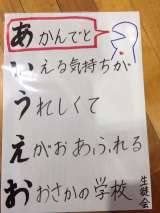 あかんでと
いえる気持ちが
うれしくて
えがおあふれる
おおさかの学校
生徒会